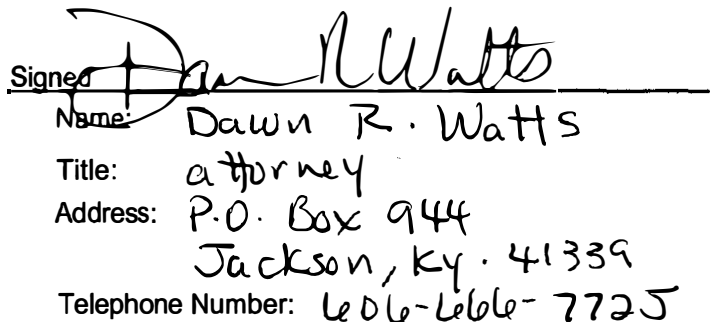 Signed Dawn R Watts
Name: Dawn R. Watts
Title: attorney
Address: P.O. Box 944
Jackson, Ky. 41339
Telephone Number: 606-666-7725